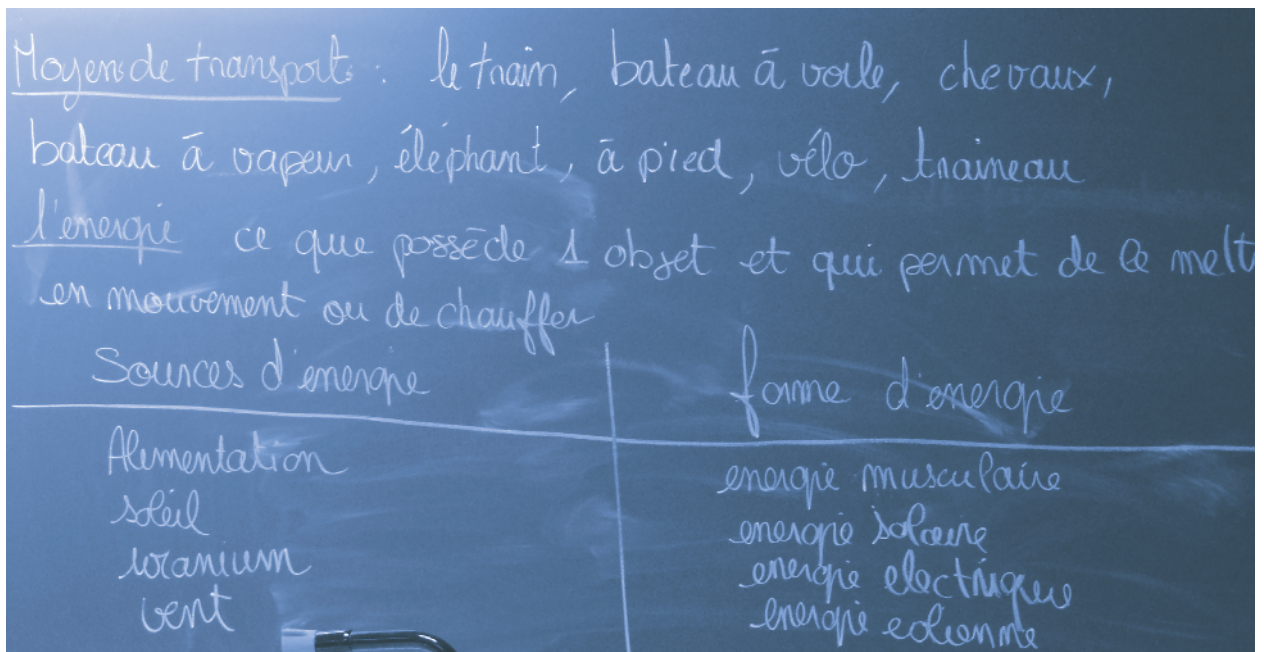 Moyens de transports : le train, bateau à voile, chevaux,
bateau à vapeur, éléphant, à pied, vélo, traineau
l'énergie ce que possède 1 objet et qui permet de le mett
en mouvement ou de chauffer
Sources d'énergie
forme d'energie
Alimentation
soleil
uranium
vent
energie musculaire
energie solaire
energie electrique
energie eolienne